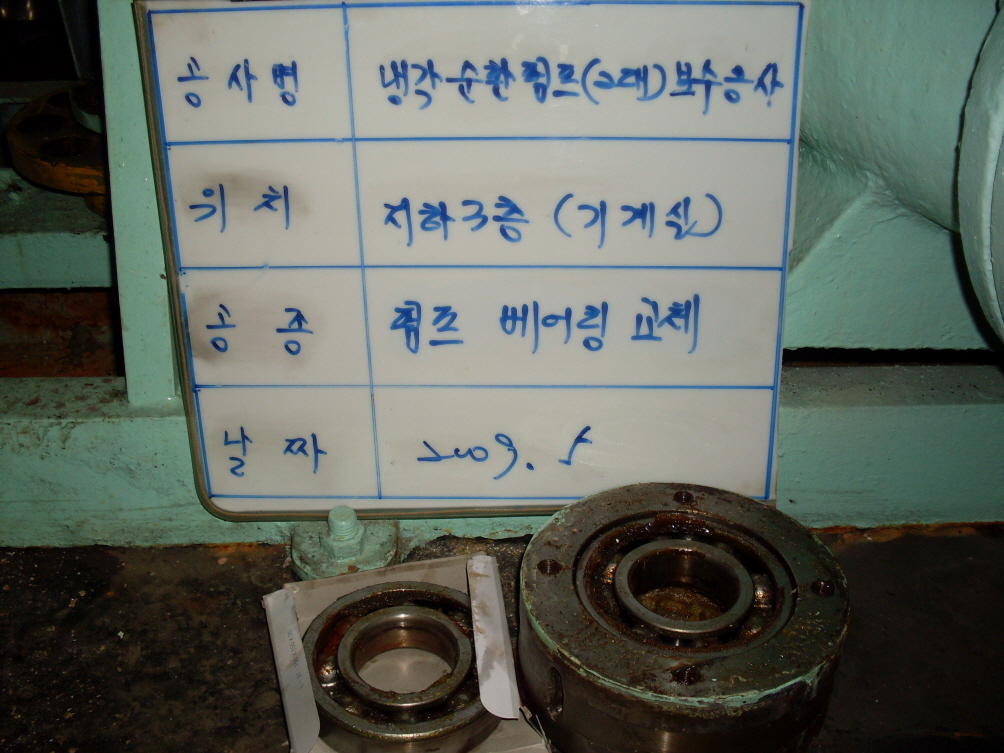 공사명 냉각순환펌프(2대)보수공사
위치 지하3층 (기계실)
공종 펌프 베어링 교체
날짜 2009. 5